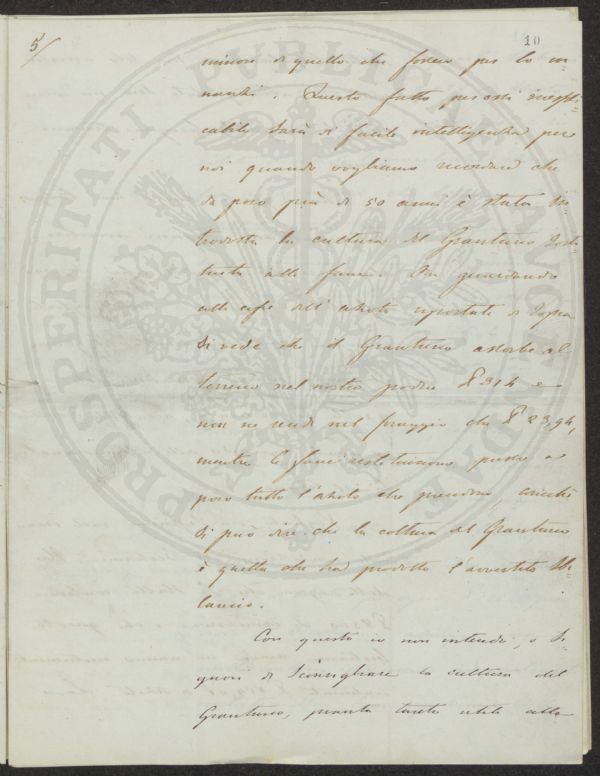 5/
10
minori di quello che fosse per lo in-
nanzi. Questo fatto per essi inespli-
cabile sarà di facile intelligenza per
noi quando vogliamo ricordare che
da poco più di 50 anni è stata in-
trodotta la cultura del Granturco sosti-
tuita alle fave. Ma guardando
alle cifre dell'azoto riportate di sopra
si vede che il Granturco assorbe al
terreno nel nostro podere 314 e
non ne rende nel foraggio che 23,94,
mentre le fave restituiscono presso a
poco tutto l'azoto che prendono, cosicchè
si può dire che la coltura del Granturco
è quella che ha prodotto l'avvertito sbi-
lancio.
Con questo io non intendo, o Si-
gnori di sconsigliare la cultura del
Granturco, pianta tanto utile alla
PROSPERITATI PUBLICAE AUGENDAE